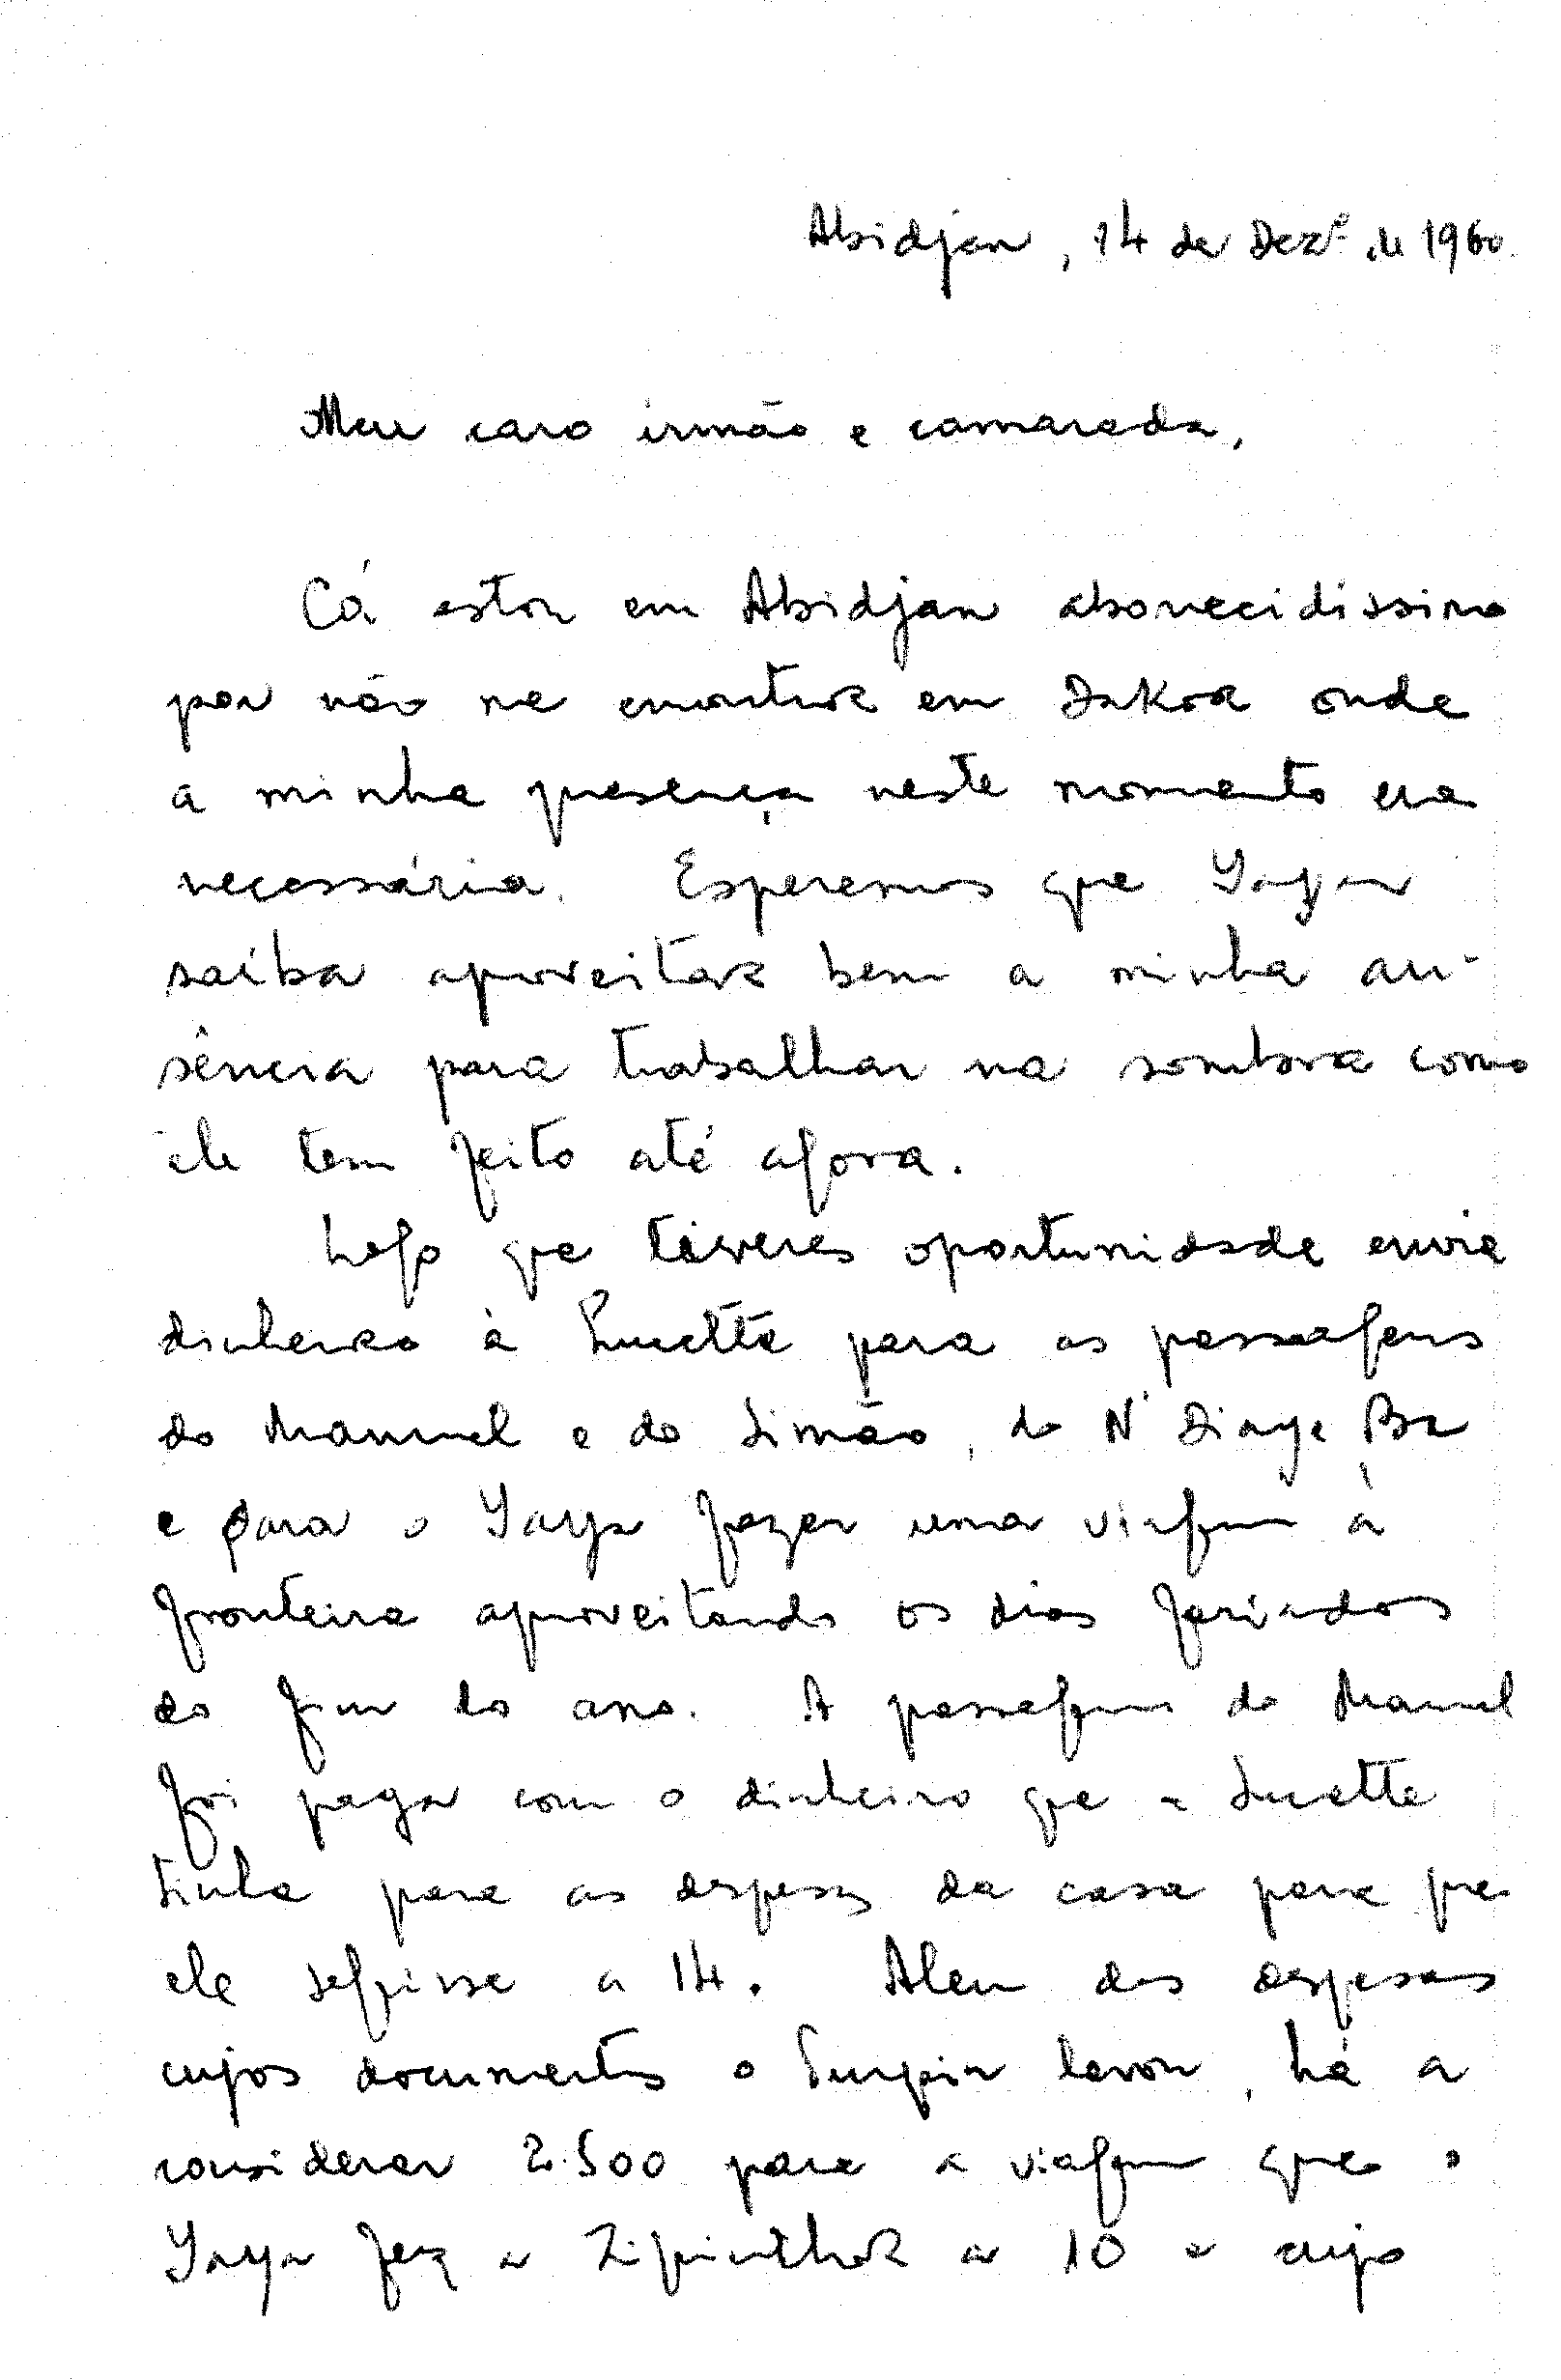 Abidjan, 14 de Dezº de 1960.
Meu caro irmão e camarada,
Cá estou em Abidjan aborrecidíssimo
por não me encontrar em Dakar onde
a minha presença neste momento era
necessária. Esperemos que Yaya
saiba aproveitar bem a minha au-
sência para trabalhar na sombra como
ele tem feito até agora.
Logo que tiveres oportunidade envia
dinheiro à Lucette para as passagens
do Manuel e do Simão, do N'Diaye Ba
e para o Yaya fazer uma viagem à
fronteira aproveitando os dias feriados
do fim do ano. A passagem do Manuel
foi paga com o dinheiro que a Lucette
tinha para as despesas da casa para que
ele seguisse a 14. Alem das despesas
cujos documentos o Turpin levou, há a
considerar 2.500 para a viagem que o
Yaya fez a Ziguinchor a 10 e cujo